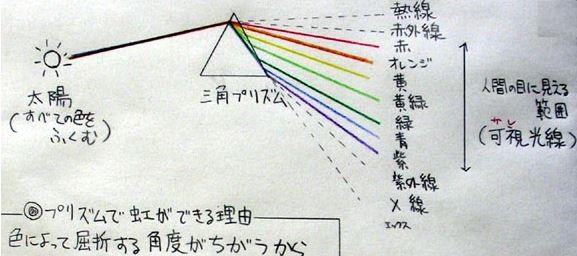 熱線
赤外線
赤
オレンジ
黄
黄緑
緑
青
紫
紫外線
X線
エックス
太陽
(すべての色を
ふくむ)
三角プリズム
人間の目に見える
範囲
(可視光線)
◎プリズムで虹ができる理由
色によって屈折する角度がちがうから